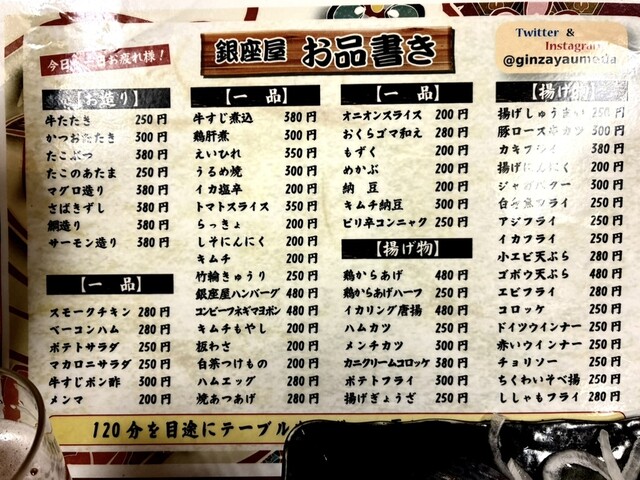 銀座屋 お品書き
Twitter &
Instagram
@ginzayaumeda
お疲れ様!
【お造り】
牛たたき 250円
かつおたたき 300円
たこぶつ 380円
たこのあたま 250円
マグロ造り 380円
さばきずし 380円
鯛造り 380円
サーモン造り 380円
【一 品】
スモークチキン 280円
ベーコンハム 280円
ポテトサラダ 250円
マカロニサラダ 250円
牛すじポン酢 300円
メンマ 200円
【一 品】
牛すじ煮込 380円
鶏肝煮 300円
えいひれ 350円
うるめ焼 300円
イカ塩辛 200円
トマトスライス 350円
らっきょ 200円
しそにんにく 200円
キムチ 200円
竹輪きゅうり 250円
銀座屋ハンバーグ 480円
コンビーフネギマヨポン 480円
キムチもやし 200円
板わさ 200円
白菜つけもの 200円
ハムエッグ 280円
焼あつあげ 280円
【一 品】
オニオンスライス 200円
おくらゴマ和え 280円
もずく 200円
めかぶ 200円
納 豆 200円
キムチ納豆 300円
ピリ辛コンニャク 250円
【揚げ物】
鶏からあげ 480円
鶏からあげハーフ 250円
イカリング唐揚 480円
ハムカツ 250円
メンチカツ 300円
カニクリームコロッケ 380円
ポテトフライ 300円
揚げぎょうざ 250円
【揚げ物】
揚げしゅうまい 250円
豚ロース串カツ 300円
カキフライ 380円
揚げにんにく 200円
ジャガバター 300円
フライ 250円
アジフライ 250円
イカフライ 250円
小エビ天ぷら 480円
ゴボウ天ぷら 480円
エビフライ 280円
コロッケ 250円
ドイツウインナー 250円
赤いウインナー 250円
チョリソー 250円
ちくわいそべ揚 250円
ししゃもフライ 280円
120分を目途にテーブル